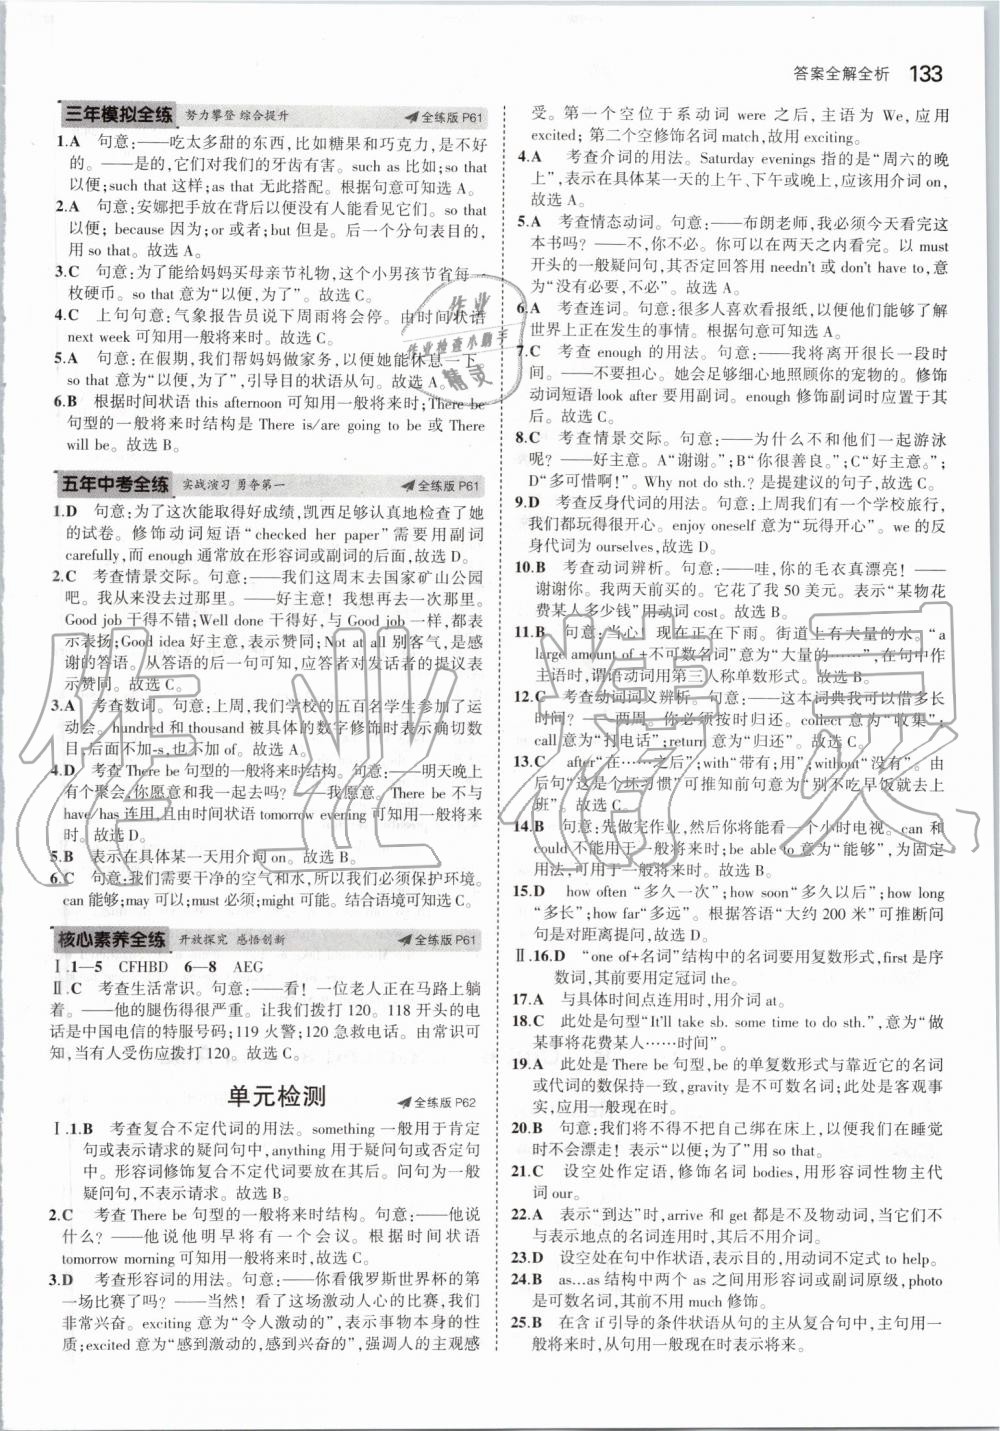 答案全解全析 133
三年模拟全练 努力攀登 综合提升 全练版 P61
1.A 句意:——吃太多甜的东西,比如糖果和巧克力,是不好
的。——是的,它们对我们的牙齿有害。such as 比如;so that
以便;such that 这样;as that 无此搭配。根据句意可知选 A。
2.A 句意:安娜把手放在背后以便没有人能看见它们。so that
以便; because 因为;or 或者;but 但是。后一个分句表目的,
用 so that。故选 A。
3.C 句意:为了能给妈妈买母亲节礼物,这个小男孩节省每一
枚硬币。so that 意为“以便,为了”。故选 C。
4.C 上句句意:气象报告员说下周雨将会停。由时间状语
next week 可知用一般将来时。故选 C。
5.A 句意:在假期,我们帮妈妈做家务,以便她能休息一下。
so that 意为“以便,为了”,引导目的状语从句。故选 A。
6.B 根据时间状语 this afternoon 可知用一般将来时;There be
句型的一般将来时结构是 There is/are going to be 或 There
will be。故选 B。
五年中考全练 实战演习 勇夺第一 全练版 P61
1.D 句意:为了这次能取得好成绩,凯西足够认真地检查了她
的试卷。修饰动词短语“checked her paper”需要用副词
carefully,而 enough 通常放在形容词或副词的后面,故选 D。
2.C 考查情景交际。句意:——我们这周末去国家矿山公园
吧。我从来没去过那里。——好主意!我想再去一次那里。
Good job 干得不错;Well done 干得好,与 Good job 一样,都
表示表扬;Good idea 好主意,表示赞同;Not at all 别客气,是感
谢的答语。从答语的后一句可知,应答者对发话者的提议表
示赞同。故选 C。
3.A 考查数词。句意:上周,我们学校的五百名学生参加了运
动会。hundred 和 thousand 被具体的数字修饰时表示确切数
目,后面不加-s,也不加 of。故选 A。
4.D 考查There be 句型的一般将来时结构。句意:——明天晚上
有聚会,你愿意和我一起去吗?——我愿意。There be 不与
have/has 连用,且由时间状语 tomorrow evening 可知用一般将来
时。故选 D。
5.B 表示在具体某一天用介词 on。故选 B。
6.C 句意:我们需要干净的空气和水,所以我们必须保护环境。
can 能够;may 可以;must 必须;might 可能。结合语境可知选 C。
核心素养全练 开放探究 感悟创新 全练版 P61
Ⅰ.1—5 CFHBD 6—8 AEG
Ⅱ.C 考查生活常识。句意:——看!一位老人正在马路上躺
着。——他的腿伤得很严重。让我们拨打 120。118 开头的电
话是中国电信的特服号码;119 火警;120 急救电话。由常识可
知,当有人受伤应拨打 120。故选 C。
单元检测 全练版 P62
Ⅰ.1.B 考查复合不定代词的用法。something 一般用于肯定
句或表示请求的疑问句中,anything 用于疑问句或否定句
中。形容词修饰复合不定代词要放在其后。问句为一般
疑问句,不表示请求。故选 B。
2.C 考查 There be 句型的一般将来时结构。句意:——他说
什么?——他说他明早将有一个会议。根据时间状语
tomorrow morning 可知用一般将来时,故选 C。
3.D 考查形容词的用法。句意:——你看俄罗斯世界杯的第
一场比赛了吗?——当然!看了这场激动人心的比赛,我们
非常兴奋。exciting 意为“令人激动的”,表示事物本身的性
质;excited 意为“感到激动的,感到兴奋的”,强调人的主观感
受。第一个空位于系动词 were 之后,主语为 We,应用
excited;第二个空修饰名词 match,故用 exciting。
4.A 考查介词的用法。Saturday evenings 指的是“周六的晚
上”,表示在具体某一天的上午、下午或晚上,应该用介词 on,
故选 A。
5.A 考查情态动词。句意:——布朗老师,我必须今天看完这
本书吗?——不,你不必。你可以在两天之内看完。以 must
开头的一般疑问句,其否定回答用 needn't 或 don't have to,意
为“没有必要,不必”。故选 A。
6.A 考查连词。句意:很多人喜欢看报纸,以便他们能够了解
世界上正在发生的事情。根据句意可知选 A。
7.C 考查 enough 的用法。句意:——我将离开很长一段时
间。——不要担心。她会足够细心地照顾你的宠物的。修饰
动词短语 look after 要用副词。enough 修饰副词时应置于其
后。故选 C。
8.C 考查情景交际。句意:——为什么不和他们一起游泳
呢?——好主意。A“谢谢。”;B“你是一个好人。”;C“好主意。”;
D“多可惜啊!”。Why not do sth.? 是提建议的句子,故选 C。
9.D 考查反身代词的用法。句意:上周我们有一个学校旅行,
我们都玩得很开心。enjoy oneself 意为“玩得开心”。we 的反
身代词为 ourselves,故选 D。
10.B 考查动词辨析。句意:——哇,你的毛衣真漂亮!——
谢谢你。我两天前买的。它花了我 50 美元。表示“某物花
费某人多少钱”用动词 cost。故选 B。
11.B 句意:当心!现在正在下雨。街道上有大量的水。“a
large amount of +不可数名词”意为“大量的……”,在句中作
主语时,谓语动词用第三人称单数形式。故选 B。
12.C 考查动词词义辨析。句意:——这本词典我可以借多长
时间?——两周。你必须按时归还。collect 意为“收集”;
call 意为“打电话”;return 意为“归还”。故选 C。
13.C after“在……之后”;with“带有;用”;without“没有”。由
后句“这是个坏习惯”可推知前句意为“别不吃早饭就去上
班”。故选 C。
14.B 句意:先做完作业,然后你将能看一个小时电视。can 和
could 不能用于一般将来时;be able to 意为“能够”,为固定
用法,可用于一般将来时。故选 B。
15.D how often “多久一次”;how soon“多久以后”;how long
“多长”;how far“多远”。根据答语“大约 200 米”可推断问
句是对距离提问,故选 D。
Ⅱ.16.D “one of+名词”结构中的名词要用复数形式,first 是序
数词,其前要用定冠词 the。
17.A 与具体时间点连用时,用介词 at。
18.C 此处是句型“It'll take sb. some time to do sth.”,意为“做
某事将花费某人……时间”。
19.A 此处是 There be 句型,be 的单复数形式与靠近它的名词
或代词的数保持一致,gravity 是不可数名词。此处是客观事
实,应用一般现在时。
20.B 句意:我们将不得不把自己绑在床上,以便我们在睡觉
时不会漂走!表示“以便;为了”用 so that。
21.C 设空处作定语,修饰名词 bodies,用形容词性物主代
词 our。
22.A 表示“到达”时,arrive 和 get 都是不及物动词,当它们
与表示地点的名词连用时,其后不用介词。
23.D 设空处在句中作状语,表示目的,用动词不定式 to help。
24.B as...as 结构中两个 as 之间用形容词或副词原级,photo
是可数名词,其前不用 much 修饰。
25.B 在含 if 引导的条件状语从句的主从复合句中,主句用一
般将来时,从句用一般现在时表示将来。
作业
作业检查小助手
精灵
作业精灵